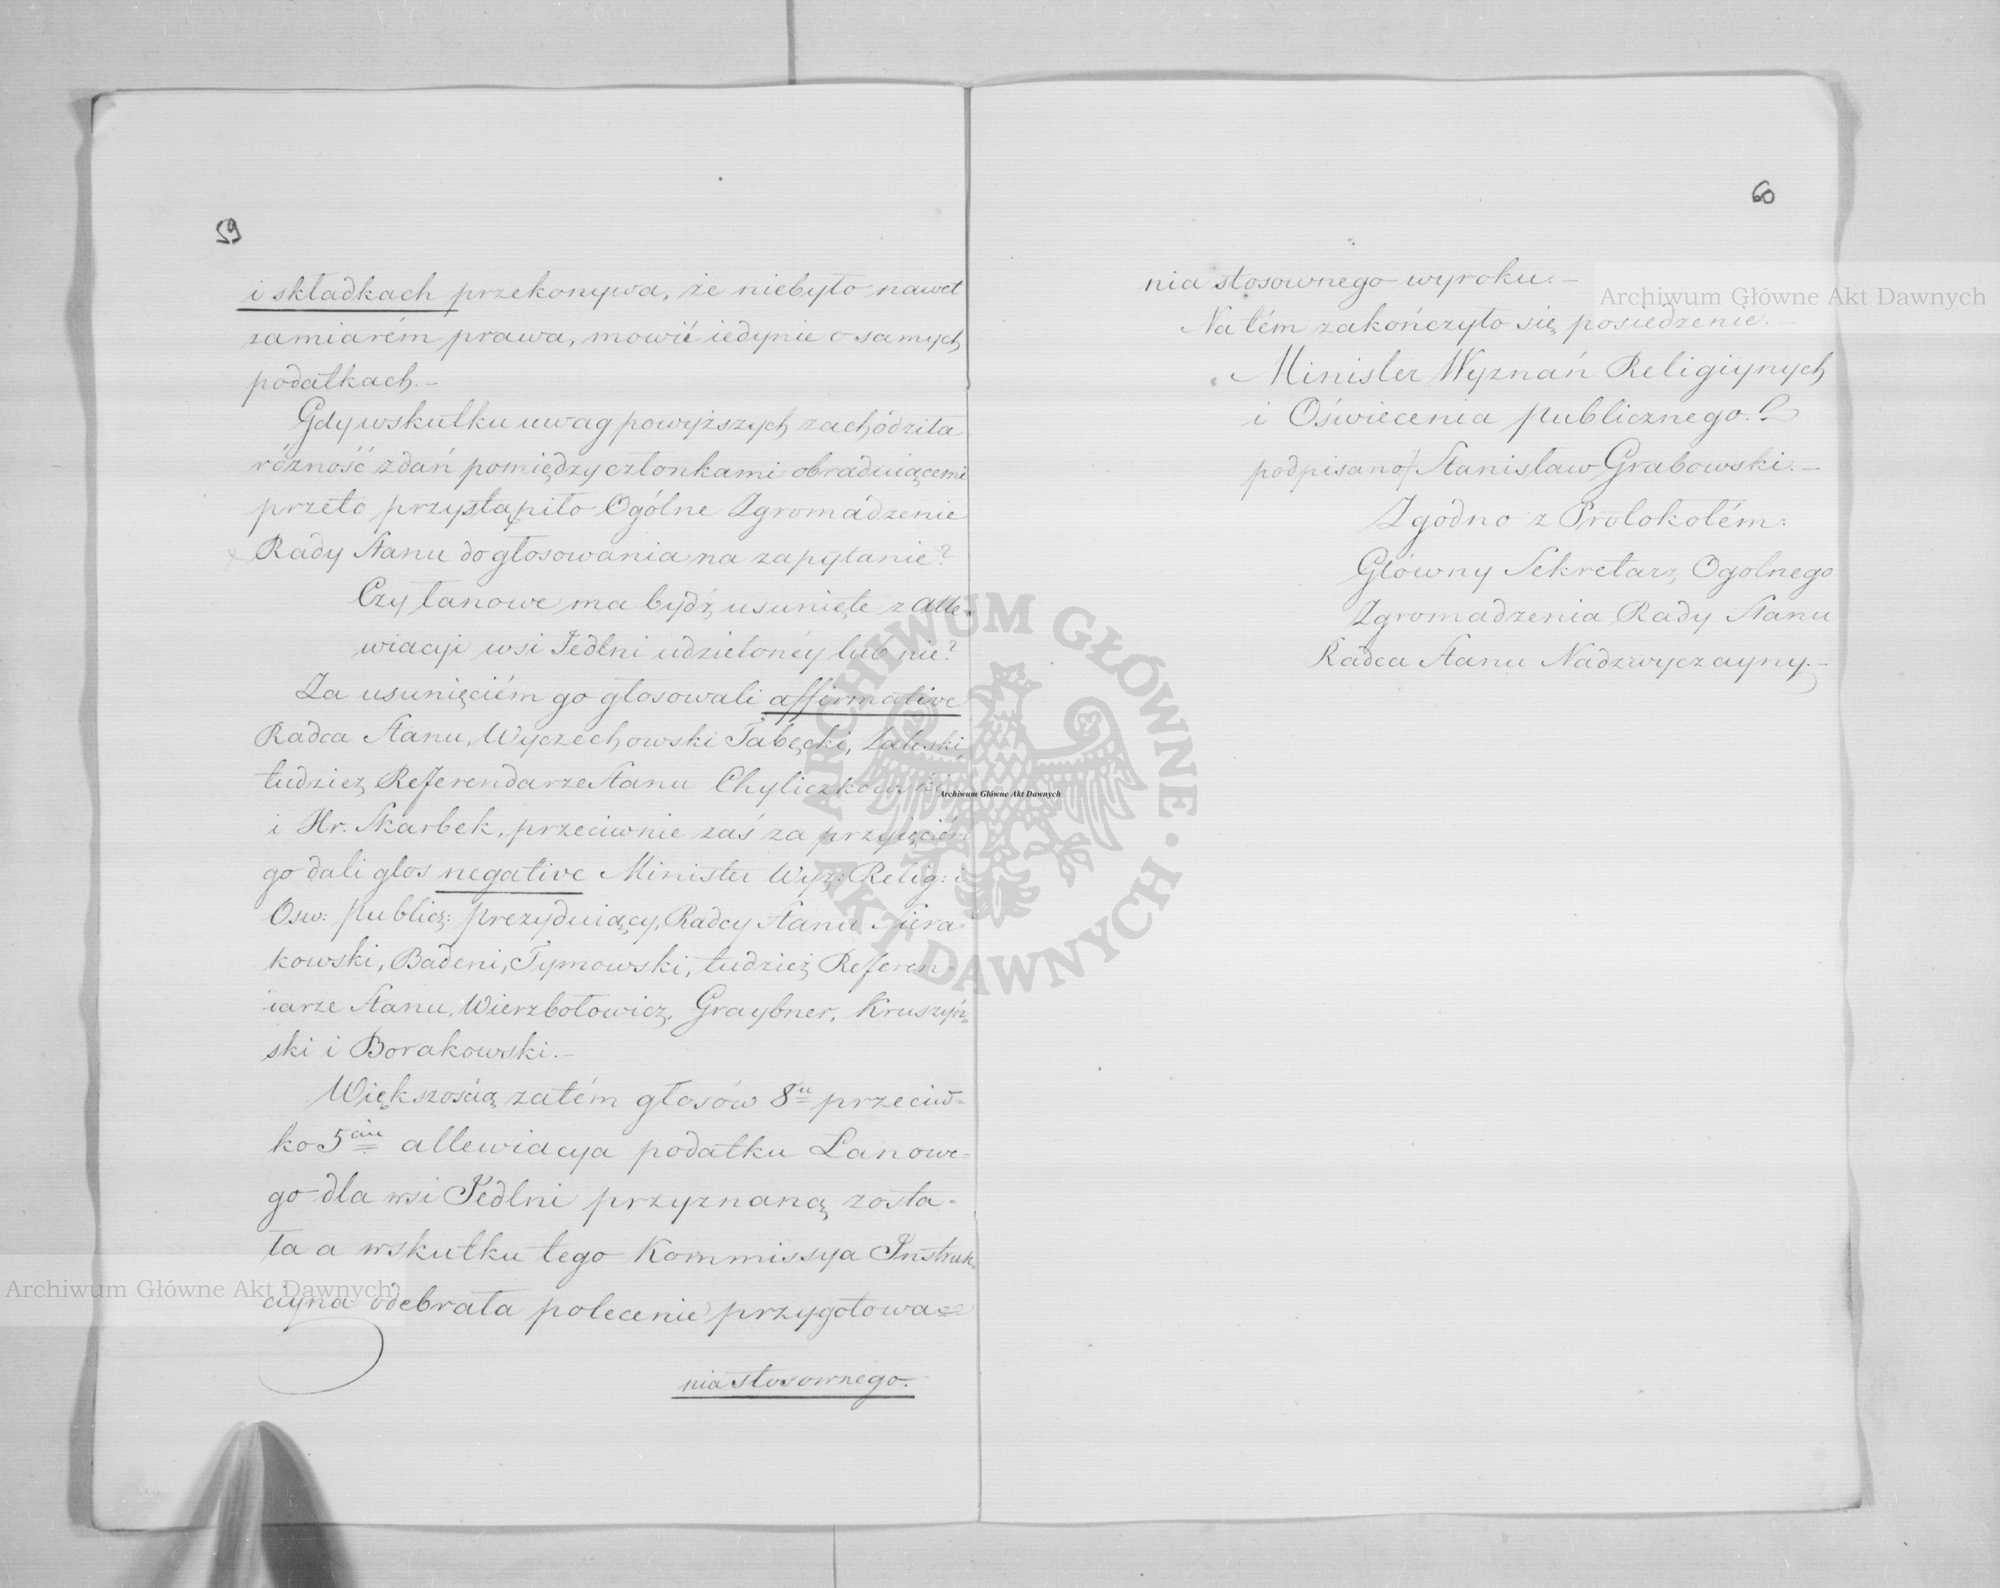 59
i składkach przekonywa, że niebyło nawet
zamiarém prawa, mowić iedynie o samych
podatkach.–
Gdy wskutku uwag powyższych zachódziła
różność zdań pomiędzy członkami obraduiącemi
przeto przystąpiło Ogólne Zgromádzenie
Rady Stanu do głosowania na zapytanie?
Czy łanowe ma bydź usunięte z alle-
wiacyi wsi Jedlni udzielonéy lub nie?
Za usunięciém go głosowali affirmative
Radca Stanu, Wyczechowski Tabęcki, Zaleski,
tudzież Referendarze Stanu Chyliczkowski
i Hr. Skarbek, przeciwnie zaś za przyięciém
go dali głos negative Minister Wyz: Relig: i
Osw: publicz: prezyduiący, Radcy Stanu Siera-
kowski, Badeni, Tymowski, tudzież Referen-
iarze Stanu, Wierzbołowicz, Graybner, Kruszyń-
ski i Borakowski.–
Większością zatém głosów 8u przeciw-
ko 5ciu allewiacya podatku Łanowe-
go dla wsi Jedlni przyznaną zosta-
ła a wskutku tego Kommissya Instruk-
cyina odebrała polecenie przygotowa-
nia stosownego.
60
nia stosownego wyroku.–
Na tém zakończyło się posiedzenie.–
Minister Wyznań Religiynych
i Oświecenia publicznego.
podpisano/ Stanisław Grabowski.–
Zgodno z Protokołém:
Główny Sekretarz Ogolnego
Zgromadzenia Rady Stanu
Radca Stanu Nadzwyczayny.–
Archiwum Główne Akt Dawnych
ARCHIWUM GŁÓWNE · AKT DAWNYCH ·
Archiwum Główne Akt Dawnych
Archiwum Główne Akt Dawnych